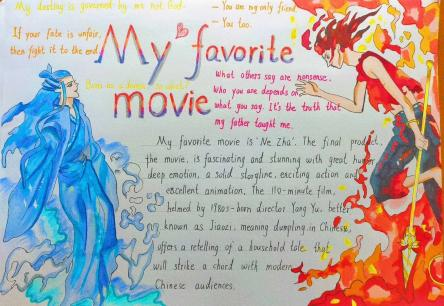 My destiny is governed by me not God.
- You are my only friend
- You too.
If your fate is unfair,
then fight it to the end.
My favorite
movie
Born as a demon so what?
What others say are nonsense.
Who you are depends on
what you say. It's the truth that
my father taught me.
My favorite movie is 'Ne Zha'. The final product,
the movie, is fascinating and stunning with great humor
deep emotion, a solid storyline, exciting action and
excellent animation. The 110-minute film,
helmed by 1980s-born director Yang Yu, better
known as Jiaozi, meaning dumpling in Chinese,
offers a retelling of a household tale that
will strike a chord with modern
Chinese audiences.